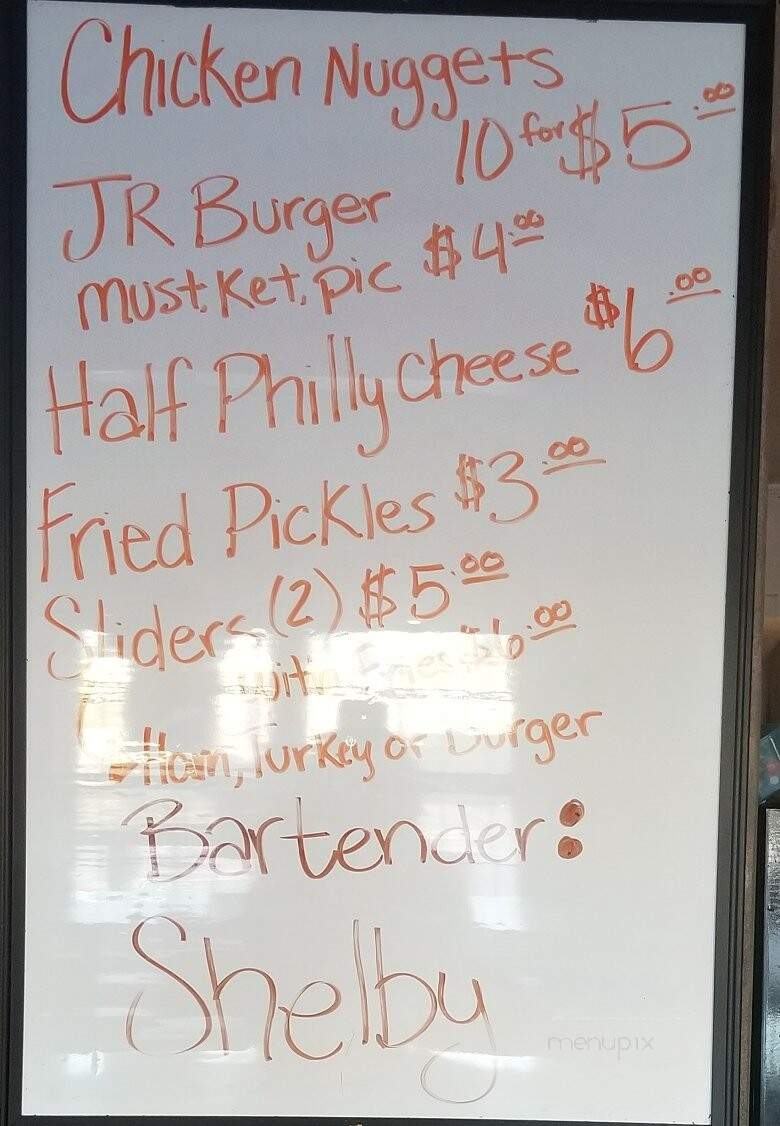 Chicken Nuggets
10 for $5.00
JR Burger
must, Ket, pic $4.00
Half Philly Cheese $6.00
Fried Pickles $3.00
Sliders (2) $5.00
with Fries $6.00
Ham, Turkey or Burger
Bartender:
Shelby
menupix